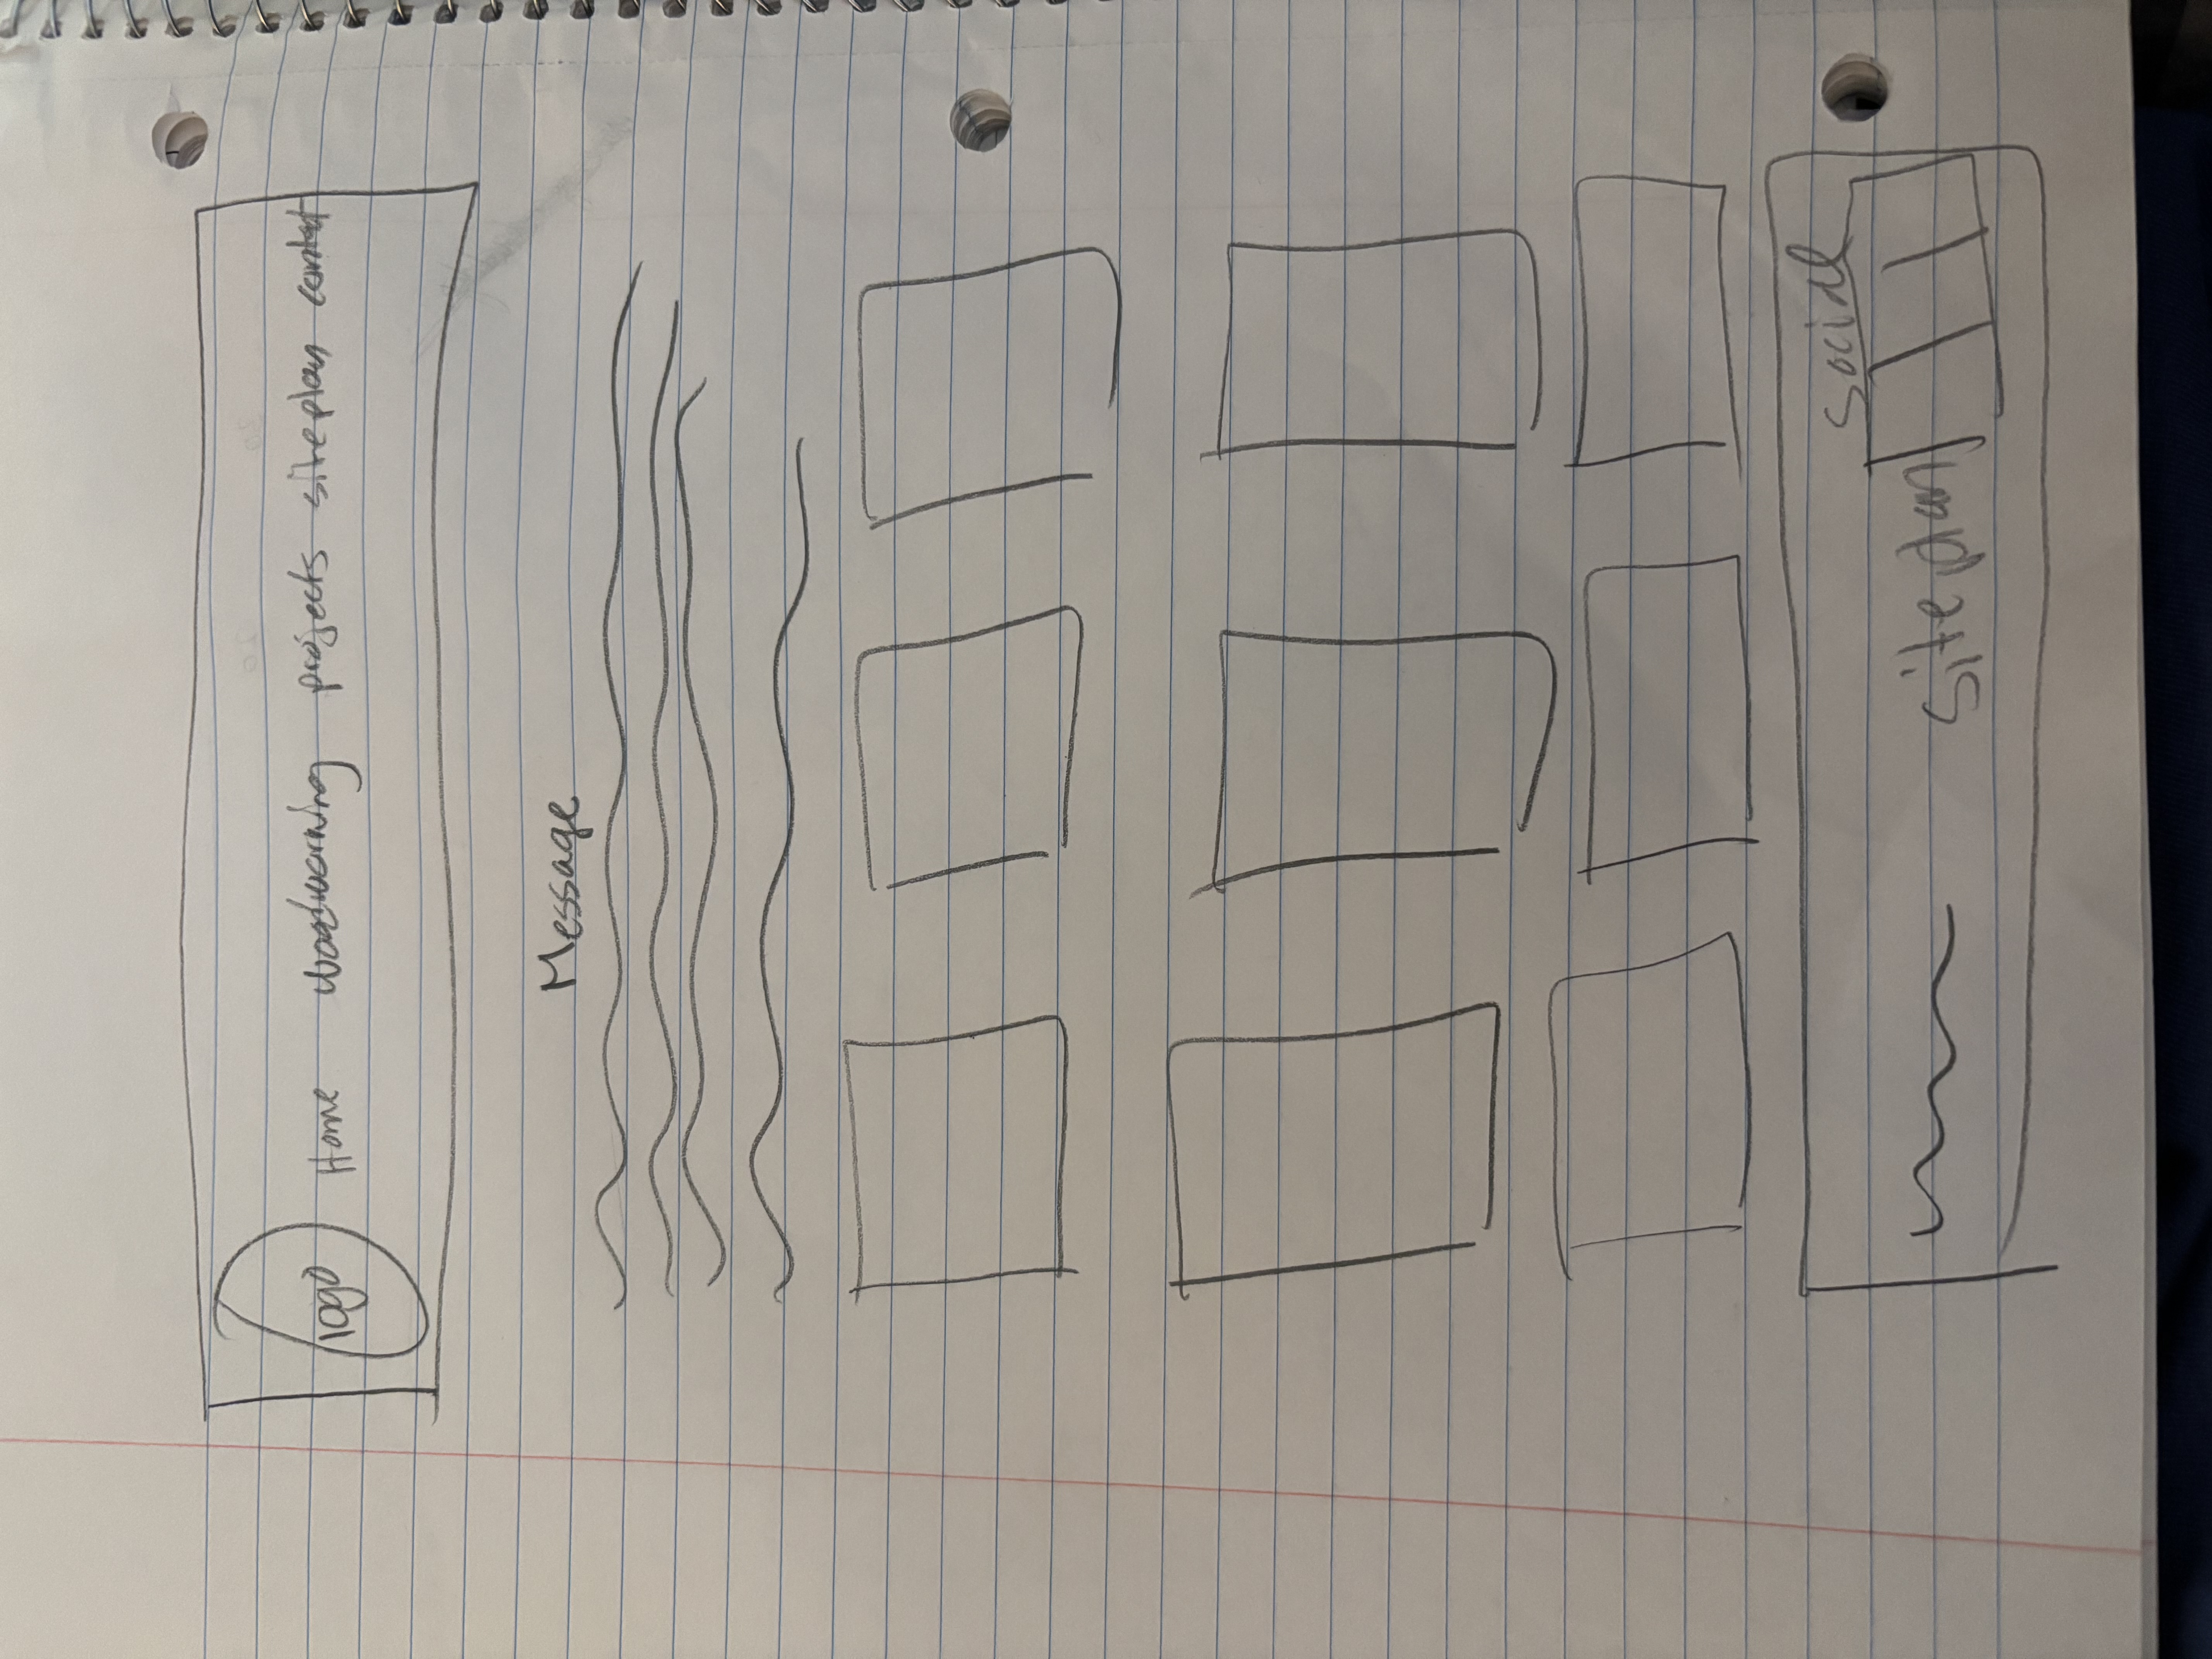 logo Home woodworking projects siteplan contact
Message
social
siteplan